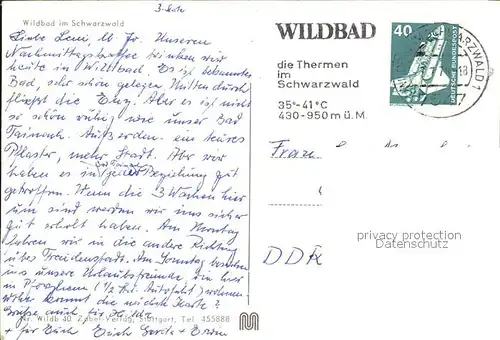 3. Seite
Wildbad im Schwarzwald
Liebe Leni, u. Fr. Unseren
Nachmittagskaffee trinken wir
heute in Wildbad. Es ist bekanntes
Bad, sehr schön gelegen. Mitten durch
fließt die Enz. Aber es ist nicht
so schön ruhig, wie unser Bad
Teinach. Außerdem ein teures
Pflaster, mehr Stadt. Aber wir
haben es in jeder Beziehung gut
Bad Teinach
getroffen. Wenn die 3 Wochen hier
um sind werden wir uns sicher
gut erholt haben. Am Montag
fahren wir in die andere Richtung
Freudenstadt. Am Sonntag
uns unsere Urlaubsfreunde, die hier
in Pforzheim (1/2 Std. Autofahrt) wohnen
kommt die nächste Karte?
Grüße auch für
+ für Euch Euch Gerda + Erwin
Nr. Wildb 40 Zobel-Verlag, Stuttgart, Tel. 455888
WILDBAD
die Thermen
im
Schwarzwald
35°-41°C
430-950 m ü. M.
40
DEUTSCHE BUNDESPOST
SCHWARZWALD 1
Frau
DDR
privacy protection
Datenschutz